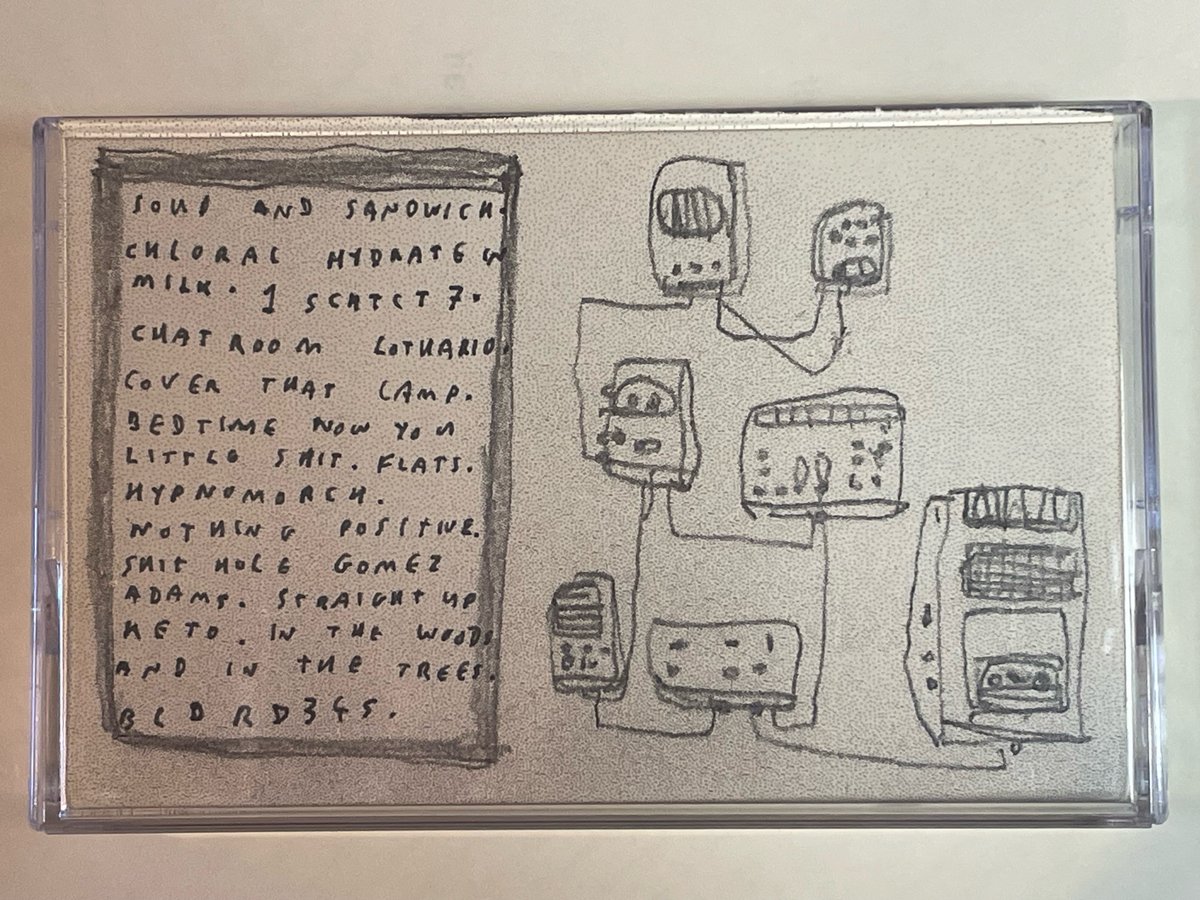 SOUP AND SANDWICH.
CHLORAL HYDRATE W
MILK. 1 7.
CHAT ROOM LOTHARIO.
COVER THAT LAMP.
BEDTIME NOW YOU
LITTLE SHIT. FLATS.
HYPNOMARCH.
NOTHING POSITIVE.
SHIT HOLE GOMEZ
ADAMS. STRAIGHT UP
KETO. IN THE WOODS
AND IN THE TREES.